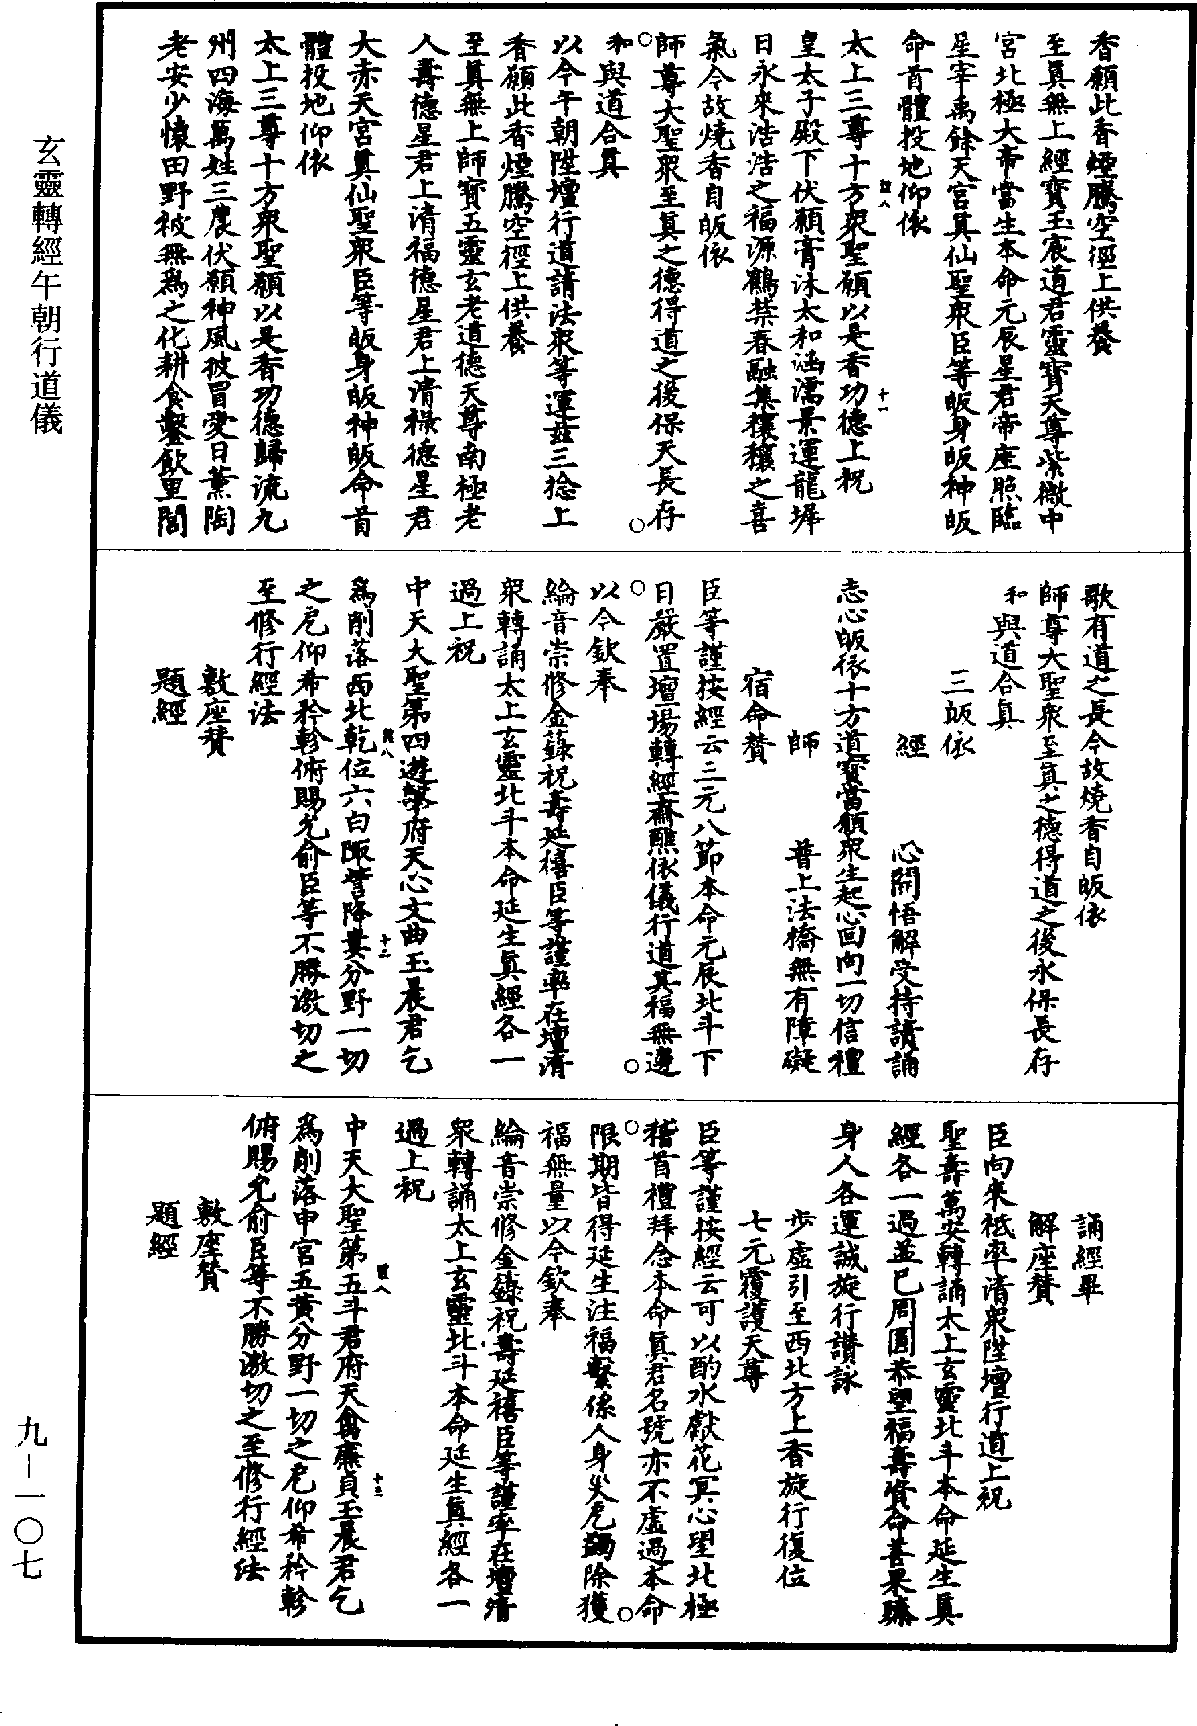 香願此香煙騰空徑上供養
至眞無上經寶玉宸道君靈寶天尊紫微中
宮北極大帝當生本命元辰星君帝座照臨
星宰禹餘天宮眞仙聖衆臣等皈身皈神皈
命首體投地仰依
太上三尊十方衆聖願以是香功德上祝
皇太子殿下伏願膏沐太和涵濡景運龍墀
日永來浩浩之福源鶴禁春融集穰穰之喜
氣今故燒香自皈依
師尊大聖衆至眞之德得道之後保天長存
和與道合眞
以今午朝陞壇行道請法衆等運茲三捻上
香願此香煙騰空徑上供養
至眞無上師寶五靈玄老道德天尊南極老
人壽德星君上清福德星君上清祿德星君
大赤天宮眞仙聖衆臣等皈身皈神皈命首
體投地仰依
太上三尊十方衆聖願以是香功德歸流九
州四海萬姓三農伏願神風被冒愛日薰陶
老安少懷田野被無為之化耕食鑿飲里閭
歌有道之長今故燒香自皈依
師尊大聖衆至眞之德得道之後永保長存
和與道合眞
三皈依
經 心開悟解受持讀誦
志心皈依十方道寶當願衆生起心回向一切信禮
師 普上法橋無有障礙
宿命贊
臣等謹按經云三元八節本命元辰北斗下
日嚴置壇場轉經齋醮依儀行道其福無邊
以今欽奉
綸音崇修金籙祝壽延禧臣等謹率在壇清
衆轉誦太上玄靈北斗本命延生眞經各一
過上祝
中天大聖第四遊𦊰府天心文曲玉晨君乞
為削落西北乾位六白陬訾降婁分野一切
之厄仰希矜軫俯賜允俞臣等不勝激切之
至修行經法
敷座贊
題經
誦經畢
解座贊
臣向來祗率清衆陞壇行道上祝
聖壽萬安轉誦太上玄靈北斗本命延生眞
經各一過並已周圓恭望福壽資命善果臻
身人各運誠旋行讚詠
步虛引至西北方上香旋行復位
七元覆護天尊
臣等謹按經云可以酌水獻花冥心望北極
稽首禮拜念本命眞君名號亦不虛過本命
限期皆得延生注福繫係人身災厄蠲除獲
福無量以今欽奉
綸音崇修金籙祝壽延禧臣等謹率在壇清
衆轉誦太上玄靈北斗本命延生眞經各一
過上祝
中天大聖第五斗君府天禽廉貞玉晨君乞
為削落中宮五黃分野一切之厄仰希矜軫
俯賜允俞臣等不勝激切之至修行經法
敷座贊
題經
玄靈轉經午朝行道儀
九－一〇七